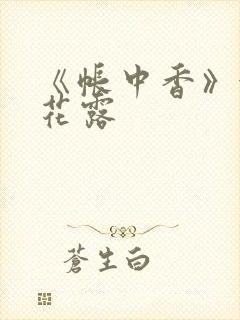 《帐中香》
花露
蒼生白